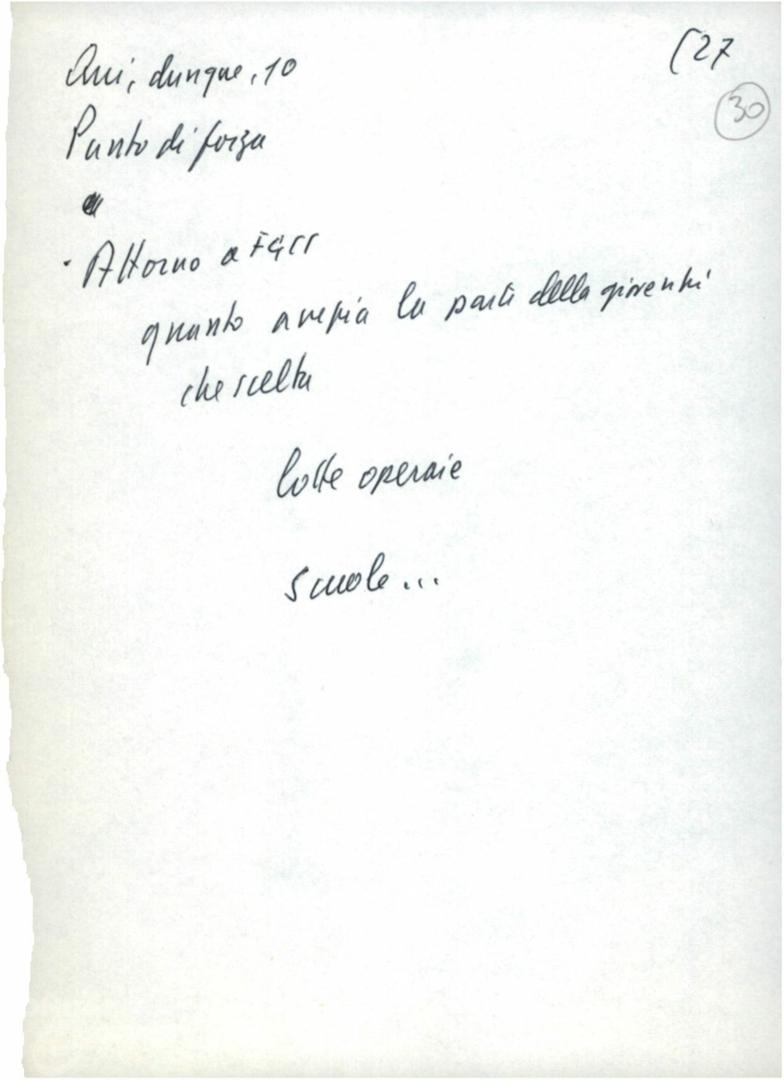 Qui, dunque, 10 (27
30
Punto di forza
· Attorno a
quanto la parte della gioventù
che scelta
lotte operaie
scuole...